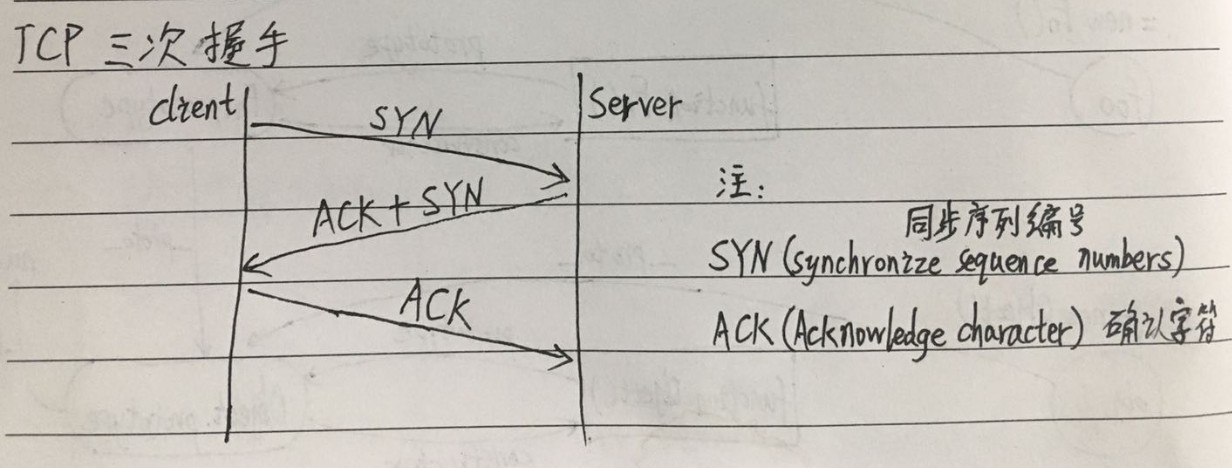 TCP 三次握手
client
Server
SYN
ACK + SYN
ACK
注:
同步序列编号
SYN (synchronize sequence numbers)
ACK (Acknowledge character) 确认字符